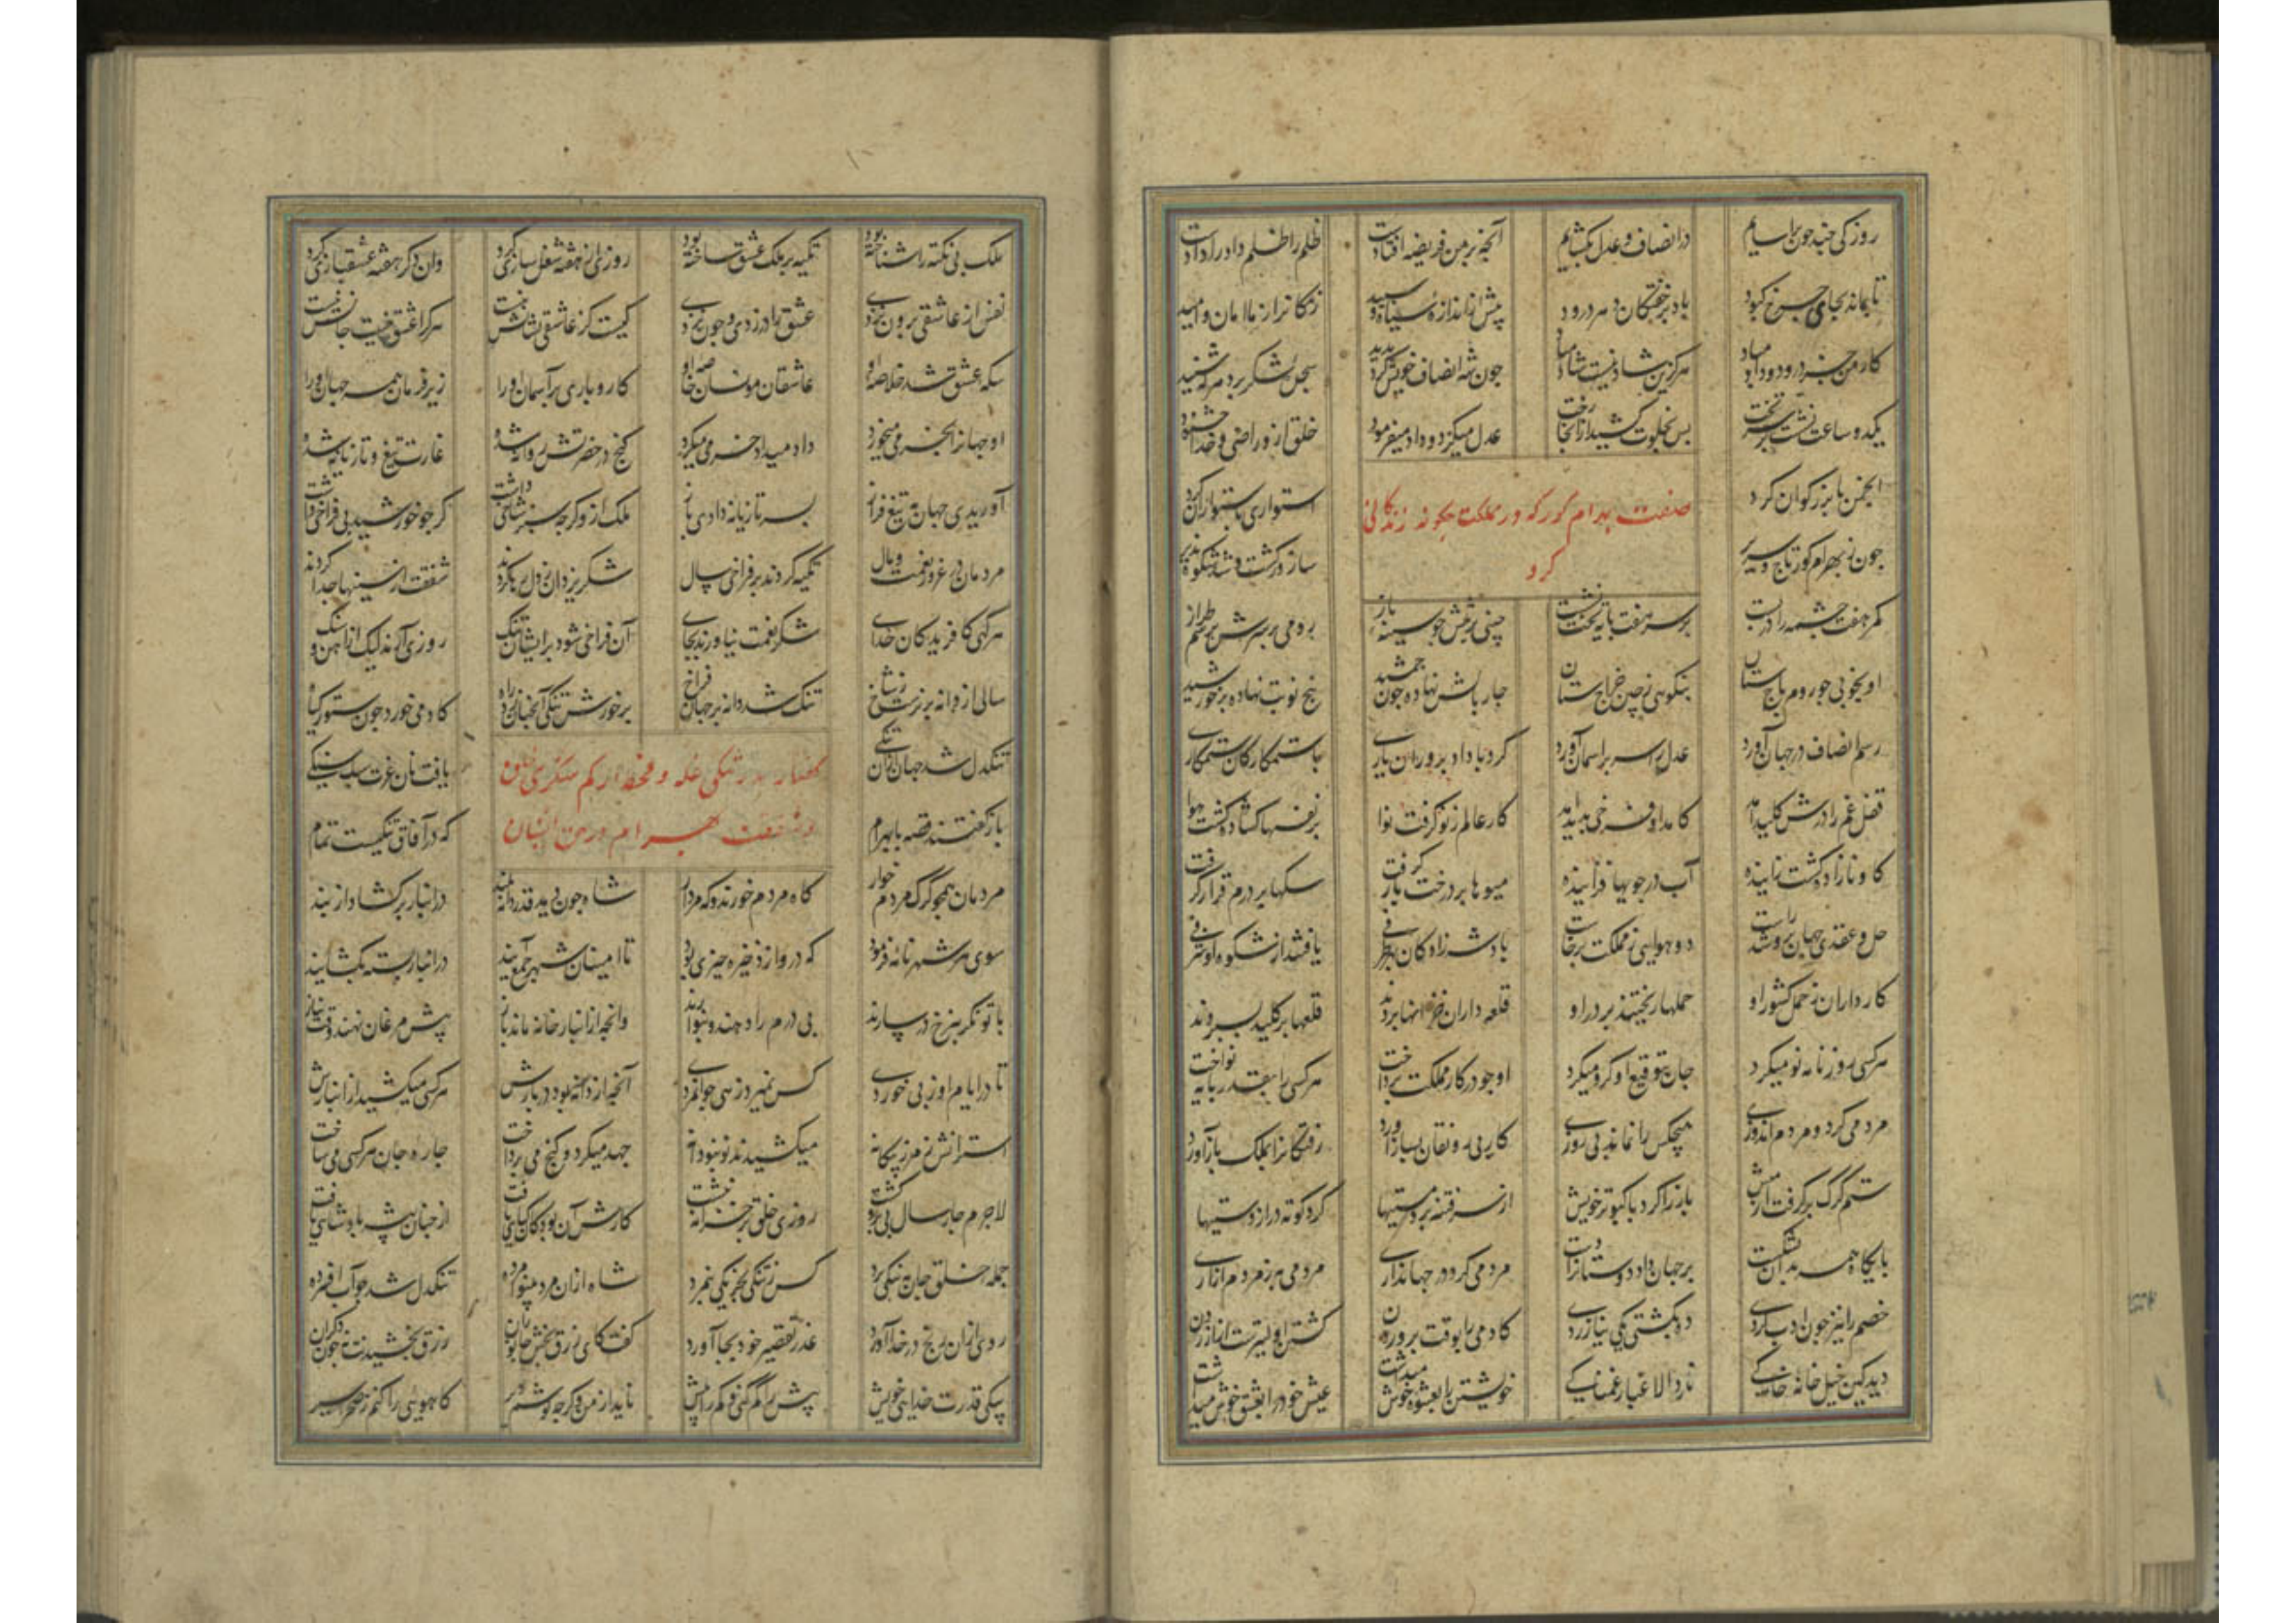 روزکی چند چون براسایم در انصاف و عدل بکشایم آنچه بر من فریضه افتادست ظلم را ظلم و داد را دادست
تا بماند بجای چرخ کبود باد بر خفتکان دهر درود پیش از اندازه سیاه و سپید زندکانرا ز ما امان و امید
کار من جز درود و داد مباد هرکزین شاد نیست شاد مباد چون شه انصاف خویش کرد پدید سجده شکر برد هر که شنید
یکدو ساعت نشست بر سر تخت پس بخلوت کشید از آنجا رخت عدل میکرد و داد میفرمود خلق ازو راضی و خدا خشنود
انجمن با بزرکواران کرد استواری باستواران کرد
صفت بهرام کور که در مملکت چکونه زندکانی کرد
چون ز بهرام کور تاج و سریر سازور کشت و شد شکوه پذیر
کمر هفت چشمه را در بست بر سر هفت پایه تخت نشست چینیی بر برش چو سینه باز رومی بر سرش برسم طراز
او بخوبی چو روم باج ستان بنکویی ز چین خراج ستان چار بالش نهاده چون جمشید پنج نوبت نهاده بر خورشید
رسم انصاف در جهان آورد عدل را سر بر اسمان آورد کرد با داد پروران یاری با ستمکارکان ستمکاری
قفل غم را درش کلید امد کامد او فرخی پدید امد کار عالم ز نو کرفت نوا بر نفسها کشاده کشت هوا
کاو نازاد کشت زاینده آب در جویها فزاینده میوها بر درخت بار کرفت سکها بر درم قرار کرفت
حل و عقدی جهان برو شد راست دو هوایی ز مملکت برخاست پادشه زادکان بهر طرفی یافتند از شکوه او شرفی
کارداران ز حمل کشور او حملها ریختند بر در او قلعه داران خزانها بردند قلعها بر کلید بسپردند
هر کسی روزنامه نو میکرد جان بتوقیع او کرو میکرد او چو در کار مملکت پرداخت هر کسی را بقدر پایه نواخت
مردمی کرد و مردم اندوزی هیچکس را نماند بی روزی کار بی رونقان بساز آورد رفتکانرا بملک باز آورد
ستم کرک برکرفت از میش باز را کرد با کبوتر خویش از سر فتنه برد مستیها کرد کوته دراز دستیها
پایکاه همه بدان بشکست بر جهان داد دوستانرا دست مردمی کرد در جهانداری مردمی به ز مردم آزاری
خصم را نیز چون ادب کردی ده بکشتی یکی نیازردی کادمی را بوقت پروردن کشتن اولیترست از آزردن
دید کین خیل خانهٔ خاکی نارد الا غبار غمناکی خویشتن را بعشوه خوش میداشت عیش خود را بعشق خوش میداشت
ملک بی تکیه را شناخته بود تکیه بر ملک عشق ساخته بود روزی از هفته شغل سازی کرد وان دکر هفته عشقبازی کرد
نفس از عاشقی برون نزدی عشق را در زدی و چون نزدی کیست کز عاشقی نشانش نیست هرکرا عشق نیست جانش نیست
سکه عشق شد خلاصه او عاشقان مونسان خاصه او کار و باری بر آسمان او را زیر فرمان همه جهان او را
او جهانرا بخرمی میخورد داد میداد و خرمی میکرد کنج در حضرتش روانه شده غارت تیغ و تازیانه شده
آوریدی جهان بتیغ فراز بسر تازیانه دادی باز ملک ازو کرچه سبز شاخی داشت کر چو خورشید پی فراخی داشت
مردمان در غرور نعمت و مال تکیه کردند بر فراخی سال شکر یزدان ز دل کردند شفقت از سینها جدا کردند
هر کهی کافریدکان خدای شکر نعمت نیاورند بجای آن فراخی شود بر ایشان تنک روزی آرند لیک از اهن و سنک
سالی از دانه بر نرست شاخ تنک شد دانه بر جهان فراخ بر خورش تنکی آنچنان زد راه کادمی خورد چون ستور کیاه
تنکدل شد جهان از آن تنکی یافت نان عزت سبک سنکی
کفتار در تنکی غله و قحط و شفقت بهرام در حق ایشان
باز کفتند قصه با بهرام که در آفاق تنکیست تمام
مردمان همچو کرک مردم خوار کاه مردم خورند و که مردار شاه چون دید قدر دانه بلند در انبار برکشاد از بند
سوی هر شهر نامهٔ فرمود که درو از ذخیره چیزی بود تا امینان شهر جمع آیند در انبار بسته بکشایند
با توانکر بنرخ در سازند بی درم را دهند و بنوازند وانچه از انبار خانه ماند باز پیش مرغان نهند وقت نیاز
تا در ایام او ز بی خوردی کس نمیرد زهی جوانمردی آنچه از دانه بود در بارش هر کسی میکشید از انبارش
استرانش ز مرز بیکانه میکشیدند نو بنو دانه جهد میکرد و کنج می پرداخت چاره جان هر کسی می ساخت
لاجرم چار سال بی بر کشت روزی خلق بر خزانه نبشت کارش آن بود کان کیایی یافت از چنان پیشه پادشایی یافت
جمله خلق جان ز تنکی برد کس ز تنکی بجز یکی نمرد شاه ازان مرد بینوا مرده تنکدل شد چو آب افسرده
روی ازان رنج در خدا آورد عذر تقصیر خود بجا آورد کفت کای رزق بخش جانوران رزق بخشیدنت نه چون دکران
بیکی قدرت خدایی خویش بیش را کم کنی و کم را بیش ناید از من وکرچه کوشم دیر کاهویی را کنم ز صحرا سیر